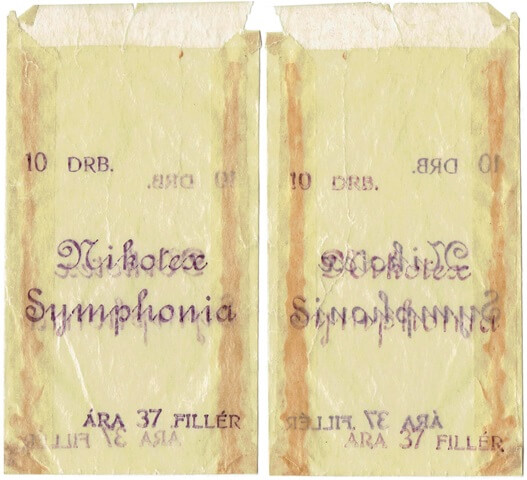 10 DRB.
Nikotex
Symphonia
ÁRA 37 FILLÉR
10 DRB.
Nikotex
Symphonia
ÁRA 37 FILLÉR